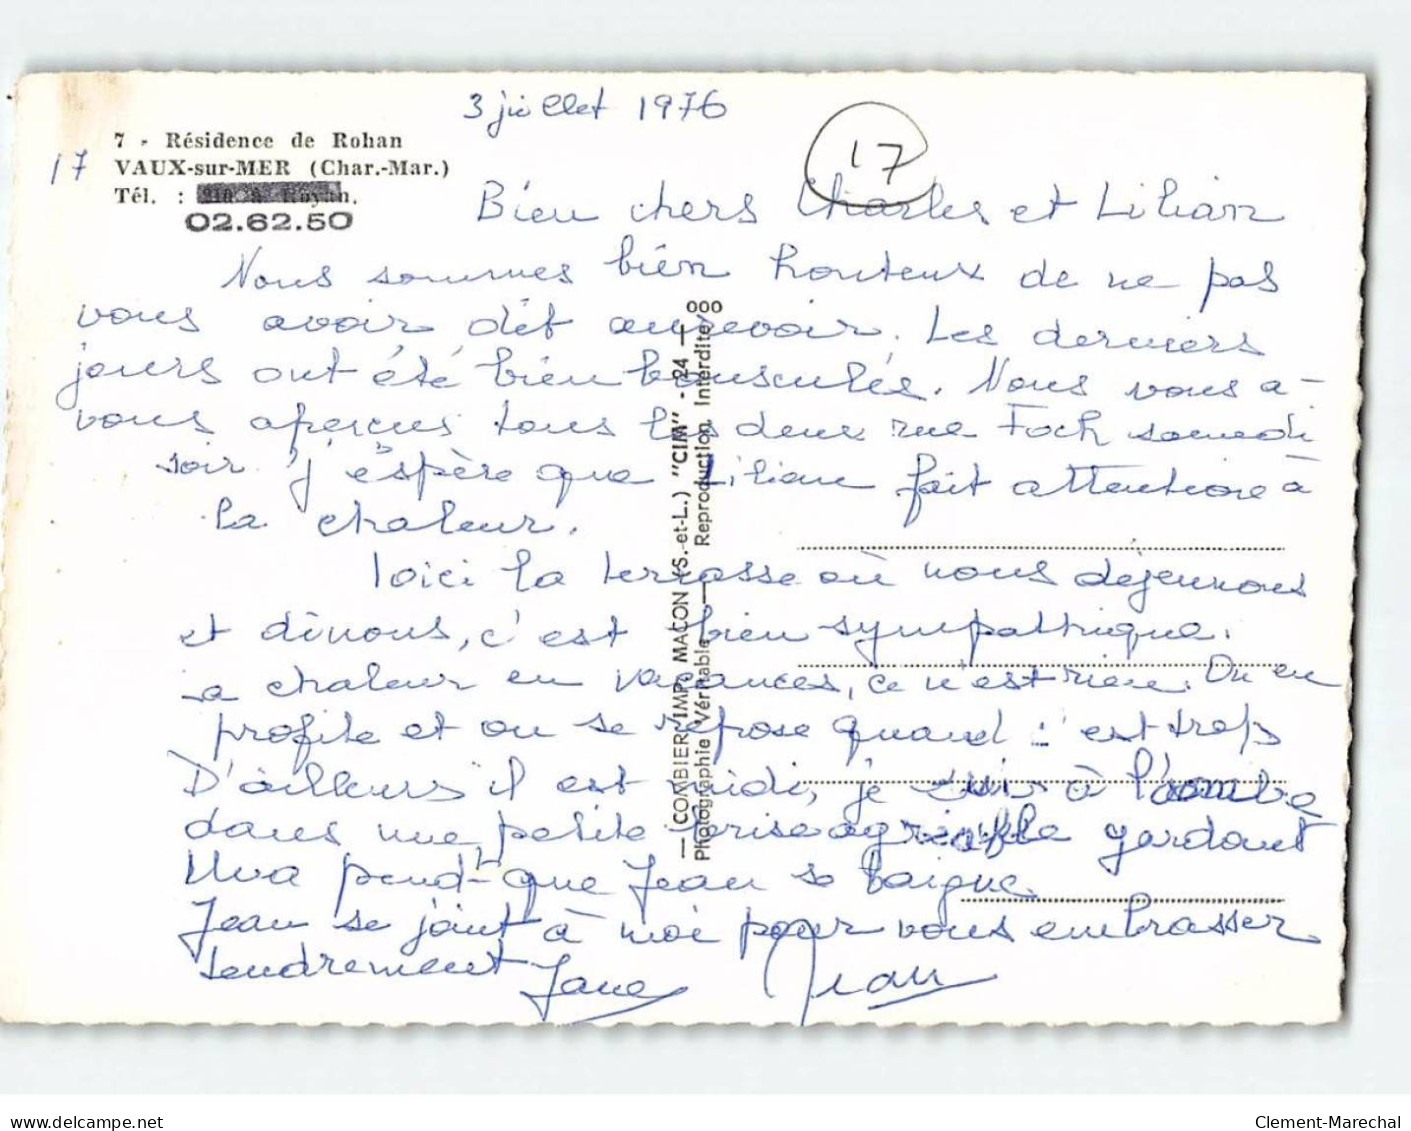 3 juillet 1976
17
7 - Résidence de Rohan
17
VAUX-sur-MER (Char.-Mar.)
Tél. :
02.62.50
Bien chers Charles et Lilian
Nous sommes bien honteux de ne pas
vous avoir dit aurevoir. Les derniers
jours ont été bien bousculés. Nous vous a-
vous aperçus tous les deux rue Foch samedi
soir j'espère que Liliane fait attention à
la chaleur.
Voici la terrasse où nous dejeunons
et dînons, c'est bien sympathique.
La chaleur en vacances, ce n'est rien. On en
profite et on se repose quand c'est trop
D'ailleurs il est midi, je suis à l'ombre
dans une petite brise agréable gardant
pend-que Jean se baigne.
Jean se joint à moi pour vous embrasser
tendrement Jane Jean
— COMBIER IMP. MACON (S.-et-L.) "CIM" - 24 — 000
Photographie Véritable — Reproduction Interdite
www.delcampe.net
Clement-Marechal